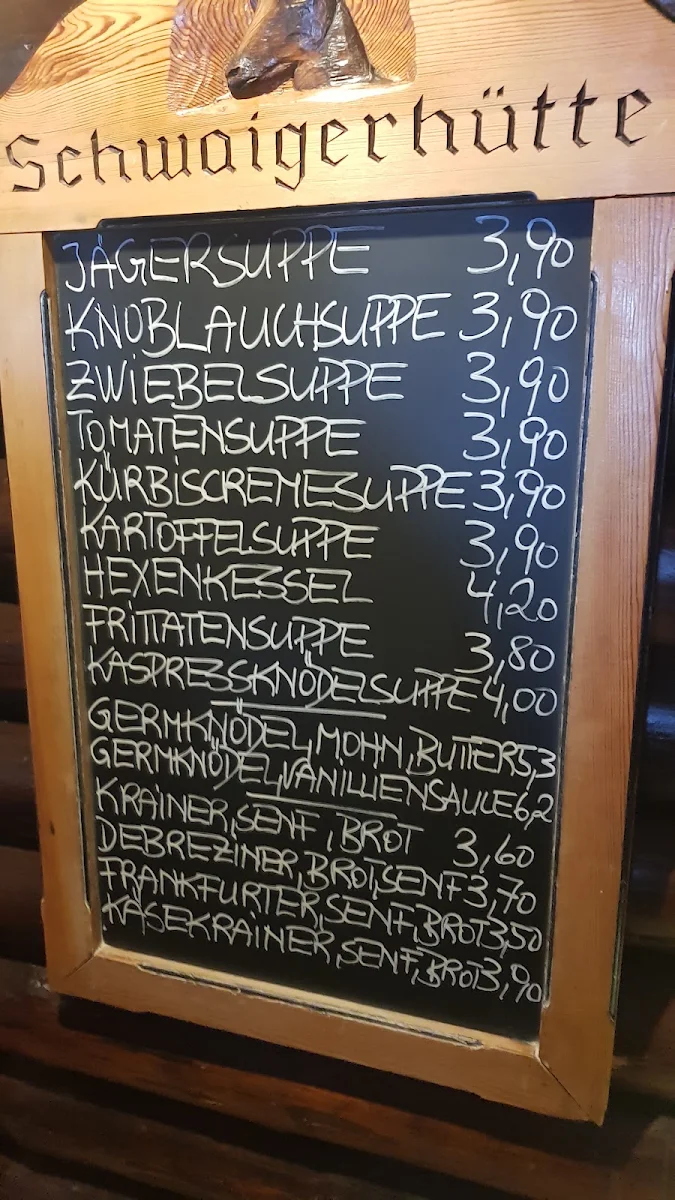 Schwaigerhütte
JÄGERSUPPE 3,90
KNOBLAUCHSUPPE 3,90
ZWIEBELSUPPE 3,90
TOMATENSUPPE 3,90
KÜRBISCREMESUPPE 3,90
KARTOFFELSUPPE 3,90
HEXENKESSEL 4,20
FRITTATENSUPPE 3,80
KASPRESSKNÖDELSUPPE 4,00
GERMKNÖDEL, MOHN, BUTTER 5,3
GERMKNÖDEL, VANILLIENSAUCE 6,2
KRAINER, SENF, BROT 3,60
DEBREZINER, BROT, SENF 3,70
FRANKFURTER, SENF, BROT 3,50
KÄSEKRAINER, SENF, BROT 3,90